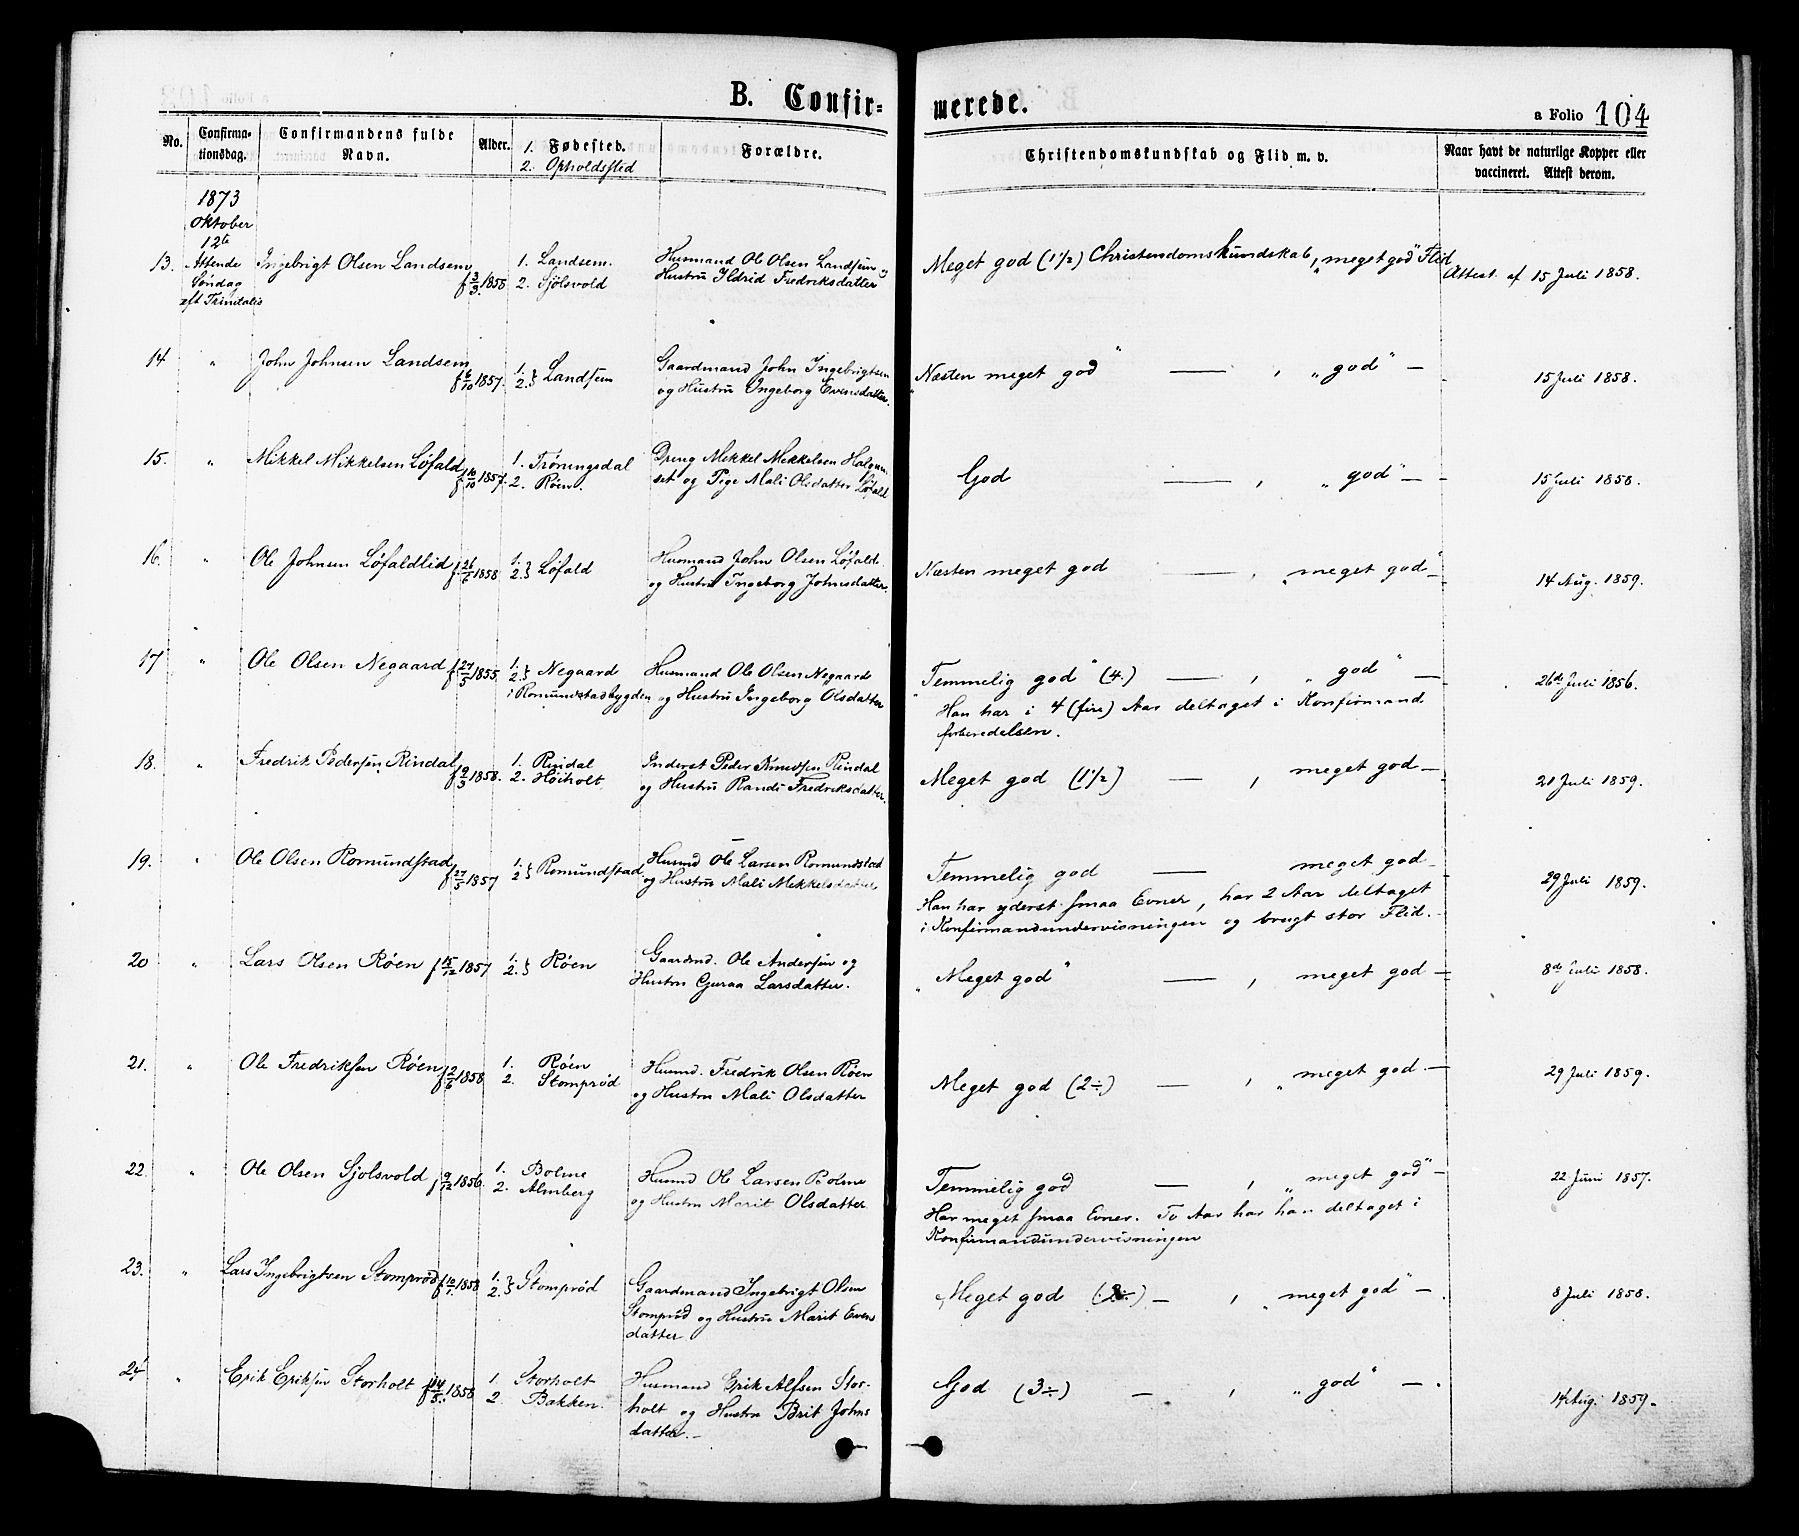 B. Confir-
merede.
a Folio 104
No.
Confirma-
tionsdag.
Confirmandens fulde
Navn.
Alder.
1. Fødested.
2. Opholdssted
Forældre.
Christendomskundskab og Flid m. v.
Naar havt de naturlige Kopper eller
vaccineret. Attest derom.
1873
Oktober
12te
Attende
Søndag
eft Trinitatis
13. Ingebrigt Olsen Landsem f 3/3 1858
1. Landsem.
2. Sjölsvold
Husmand Ole Olsen Landsem og
Hustru Ildrid Fredriksdatter
Meget god (1½) Christendomskundskab, "meget god" Flid
Attest af 15 Juli 1858.
14 " John Johnsen Landsem f 6/10 1857.
1. } Landsem
2.
Gaardmand John Ingebrigtsen
og Hustru Ingeborg Evensdatter.
"Næsten meget god" — , "god" —
15 Juli 1858.
15. " Mikkel Mikkelsen Løfald f 16/10 1857.
1. Trøningsdal
2. Røen.
Dreng Mikkel Mikkelsen Halgun-
set og Pige Mali Olsdatter Løfald
God — , "god" —
15 Juli 1858.
16. " Ole Johnsen Løfaldlid f. 26/5 1858
1. } Løfald
2.
Husmand John Olsen Løfald
og Hustru Ingeborg Johnsdatter.
Næsten meget god — , "meget god" —
14 Aug. 1859.
17 " Ole Olsen Negaard f 27/5 1855
1. } Negaard
2.
i Romundstadbygden
Husmand Ole Olsen Negaard
og Hustru Ingeborg Olsdatter
"Temmelig god" (4.) — , "god" —
Han har i 4 (fire) Aar deltaget i Konfirmand
forberedelsen.
26de Juli 1856.
18. " Fredrik Pedersen Rindal f 12/3 1858.
1. Rindal
2. Höiholt
Inderst Peder Knudsen Rindal
og Hustru Randi Fredriksdatter.
Meget god (1½) — , meget god —
21 Juli 1859.
19. " Ole Olsen Romundstad f 27/5 1857
1. } Romundstad
2
Husmd Ole Larsen Romundstad
og Hustru Mali Mikkelsdatter
Temmelig god — meget god —
Han har yderst smaa Evner, har 2 Aar deltaget
i Konfirmandundervisningen og brugt stor Flid.
29 Juli 1859.
20 " Lars Olsen Røen f 15/12 1857
1. } Røen
2.
Gaardmd. Ole Andersen og
Hustru Guraa Larsdatter.
"Meget god" — , meget god —
8de Juli 1858.
21. " Ole Fredriksen Røen f 2/6 1858
1. Røen
2. Stomprød
Husmd. Fredrik Olsen Røen
og Hustru Mali Olsdatter
Meget god (2÷) — , "meget god. —
29 Juli 1859.
22. " Ole Olsen Sjolsvold f 9/12 1856.
1. Bolme
2. Almberg
Husmd Ole Larsen Bolme
og Hustru Marit Olsdatter
Temmelig god — , "meget god" —
Har meget smaa Evner. To Aar har han deltaget i
Konfirmandundervisningen
22 Juni 1857.
23. " Lars Ingebrigtsen Stomprød f 10/1 1858
1. } Stomprød
2.
Gaardmand Ingebrigt Olsen
Stomprød og Hustru Marit Evens
datter
Meget god (2÷) — , "meget god" —
8 Juli 1858.
24 " Erik Eriksen Storholt f 14/5 1858
1. Storholt
2. Bakken.
Husmand Erik Alfsen Stor-
holt og Hustru Brit Johns
datter. —
God (3÷) — , "god" — .
14 Aug. 1859.